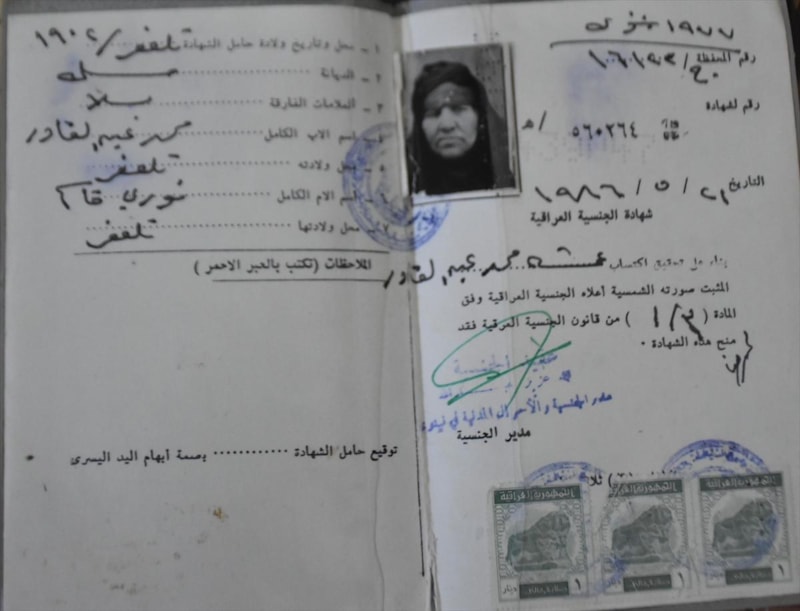 ١٩٧٧
رقم المحفظة / ١٦١٩٠٢
رقم لشهادة
٥٦٠٢٦٤ / م
التاريخ ٢١ / ٥ / ١٩٨٦
شهادة الجنسية العراقية
بناء على تحقيق اكتساب عيشه محمد عبد القادر
المثبت صورته الشمسية أعلاه الجنسية العراقية وفق
المادة ( ١/٣ ) من قانون الجنسية العرقية فقد
منح هذه الشهادة ٠
مدير الجنسية والأحوال المدنية في نينوى
مدير الجنسية
الجمهورية العراقية
الجمهورية العراقية
الجمهورية العراقية
١ دينار
١
١
١ – محل وتأريخ ولادة حامل الشهادة تلعفر / ١٩٠٢
٢ – الديانة مسلمه
٣ – العلامات الفارقة بلا
٤ – اسم الاب الكامل محمد عبد القادر
٥ – محل ولادته تلعفر
٦ – اسم الام الكامل نوري قاسم
٧ – محل ولادتها تلعفر
الملاحظات (تكتب بالحبر الاحمر)
توقيع حامل الشهادة ٠٠٠٠٠٠٠٠٠٠٠٠ بصمة أبهام اليد اليسرى